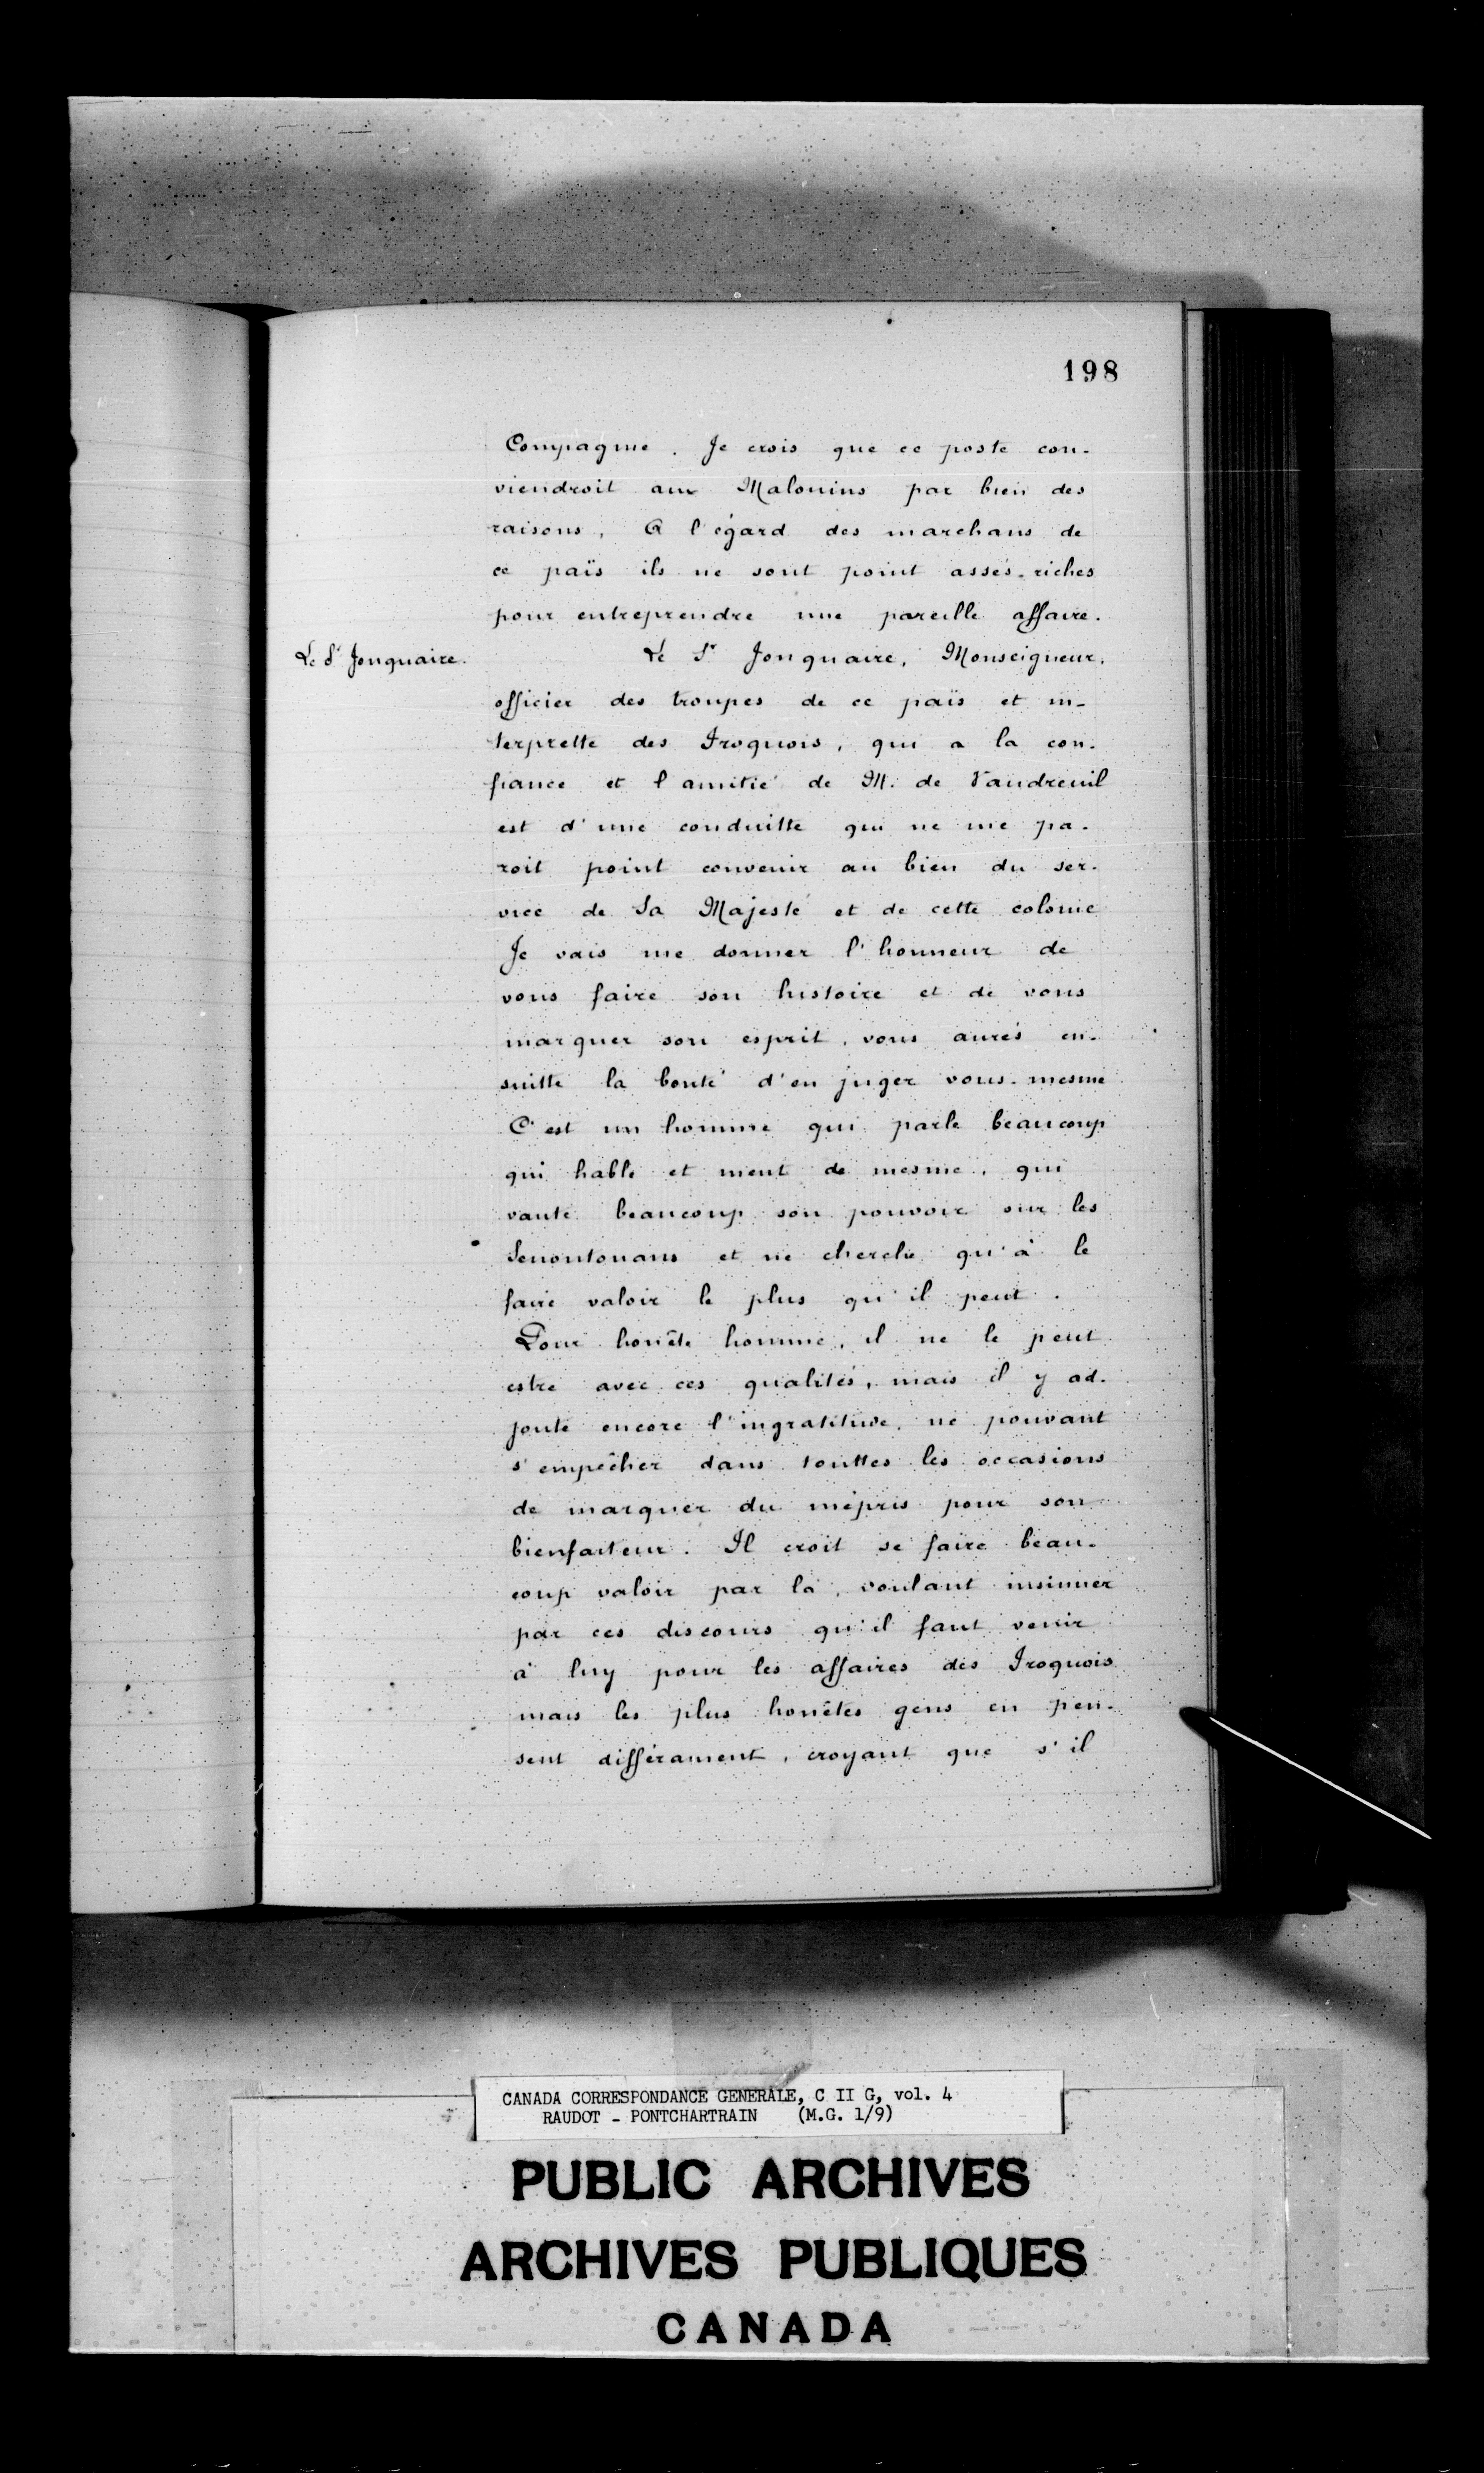 198
Compagnie. Je crois que ce poste con-
viendroit aux Malouins par bien des
raisons, A l'égard des marchans de
ce païs ils ne sont point assés riches
pour entreprendre une pareille affaire.
Le Sr Jonquaire.
Le Sr Jonquaire, Monseigneur,
officier des troupes de ce païs et in-
terprette des Iroquois, qui a la con-
fiance et l'amitié de M. de Vaudreuil
est d'une conduitte qui ne me pa-
roit point convenir au bien du ser-
vice de Sa Majesté et de cette colonie
Je vais me donner l'honneur de
vous faire son histoire et de vous
marquer son esprit, vous aurés en-
suitte la bonté d'en juger vous-mesme
C'est un homme qui parle beaucoup
qui hable et ment de mesme, qui
vante beaucoup son pouvoir sur les
Senontouans et ne cherche qu'à le
faire valoir le plus qu'il peut.
Pour honête homme, il ne le peut
estre avec ces qualités, mais il y ad-
joute encore l'ingratitude, ne pouvant
s'empêcher dans touttes les occasions
de marquer du mépris pour son
bienfaiteur. Il croit se faire beau-
coup valoir par là, voulant insinuer
par ces discours qu'il faut venir
à luy pour les affaires des Iroquois
mais les plus honêtes gens en pen-
sent différament, croyant que s'il
CANADA CORRESPONDANCE GENERALE, C II G, vol. 4
RAUDOT - PONTCHARTRAIN (M.G. 1/9)
PUBLIC ARCHIVES
ARCHIVES PUBLIQUES
CANADA